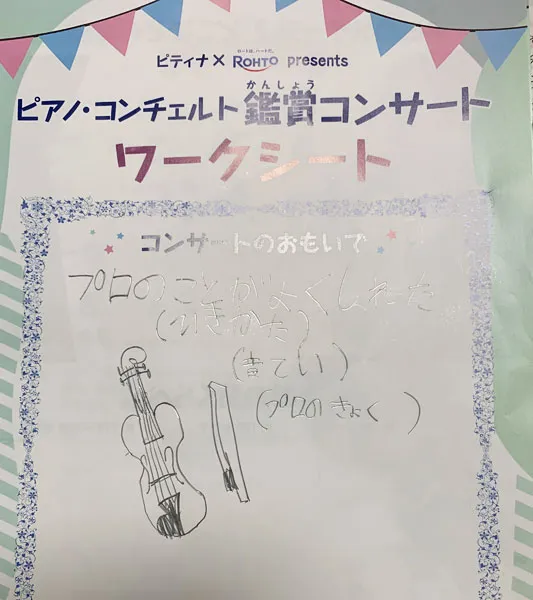 ピティナ×ROHTO presents
ピアノ・コンチェルト鑑賞コンサート
かんしょう
ワークシート
コンサートのおもいで
プロのことがよくしれた
(ひきかた)
(てい)
(プロのきょく)